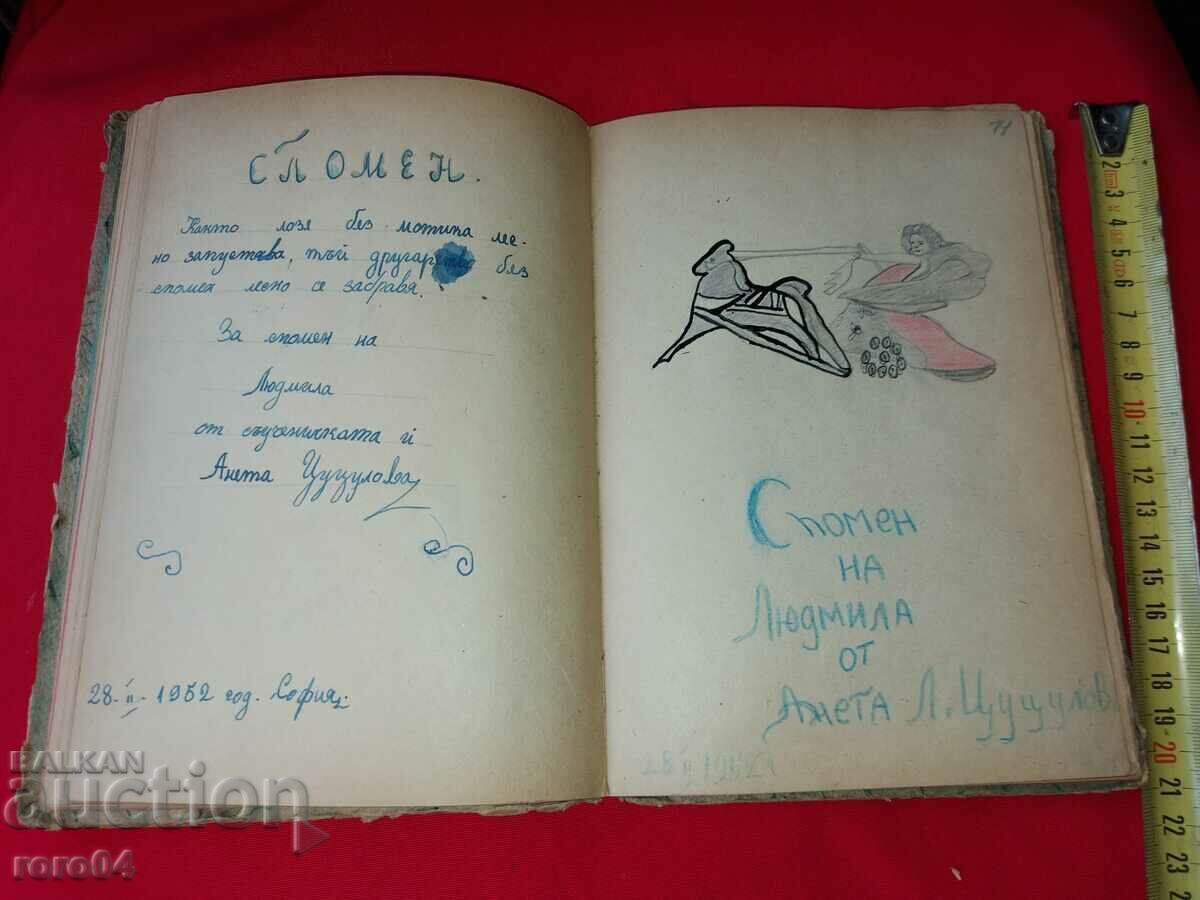 СПОМЕН.
Както лозя без мотика ле-
но запустява, тъй другар без
спомен лено се забравя.
За спомен на
Людмила
от съученичката ѝ
Анета Цуцулова
28-II-1952 год. София
14
Спомен
на
Людмила
от
Анета Л. Цуцулов
28 II 1952
BALKAN
auction
roro04
2 3 4 5 6 7 8 9 10 11 12 13 14 15 16 17 18 19 20 21 22 23